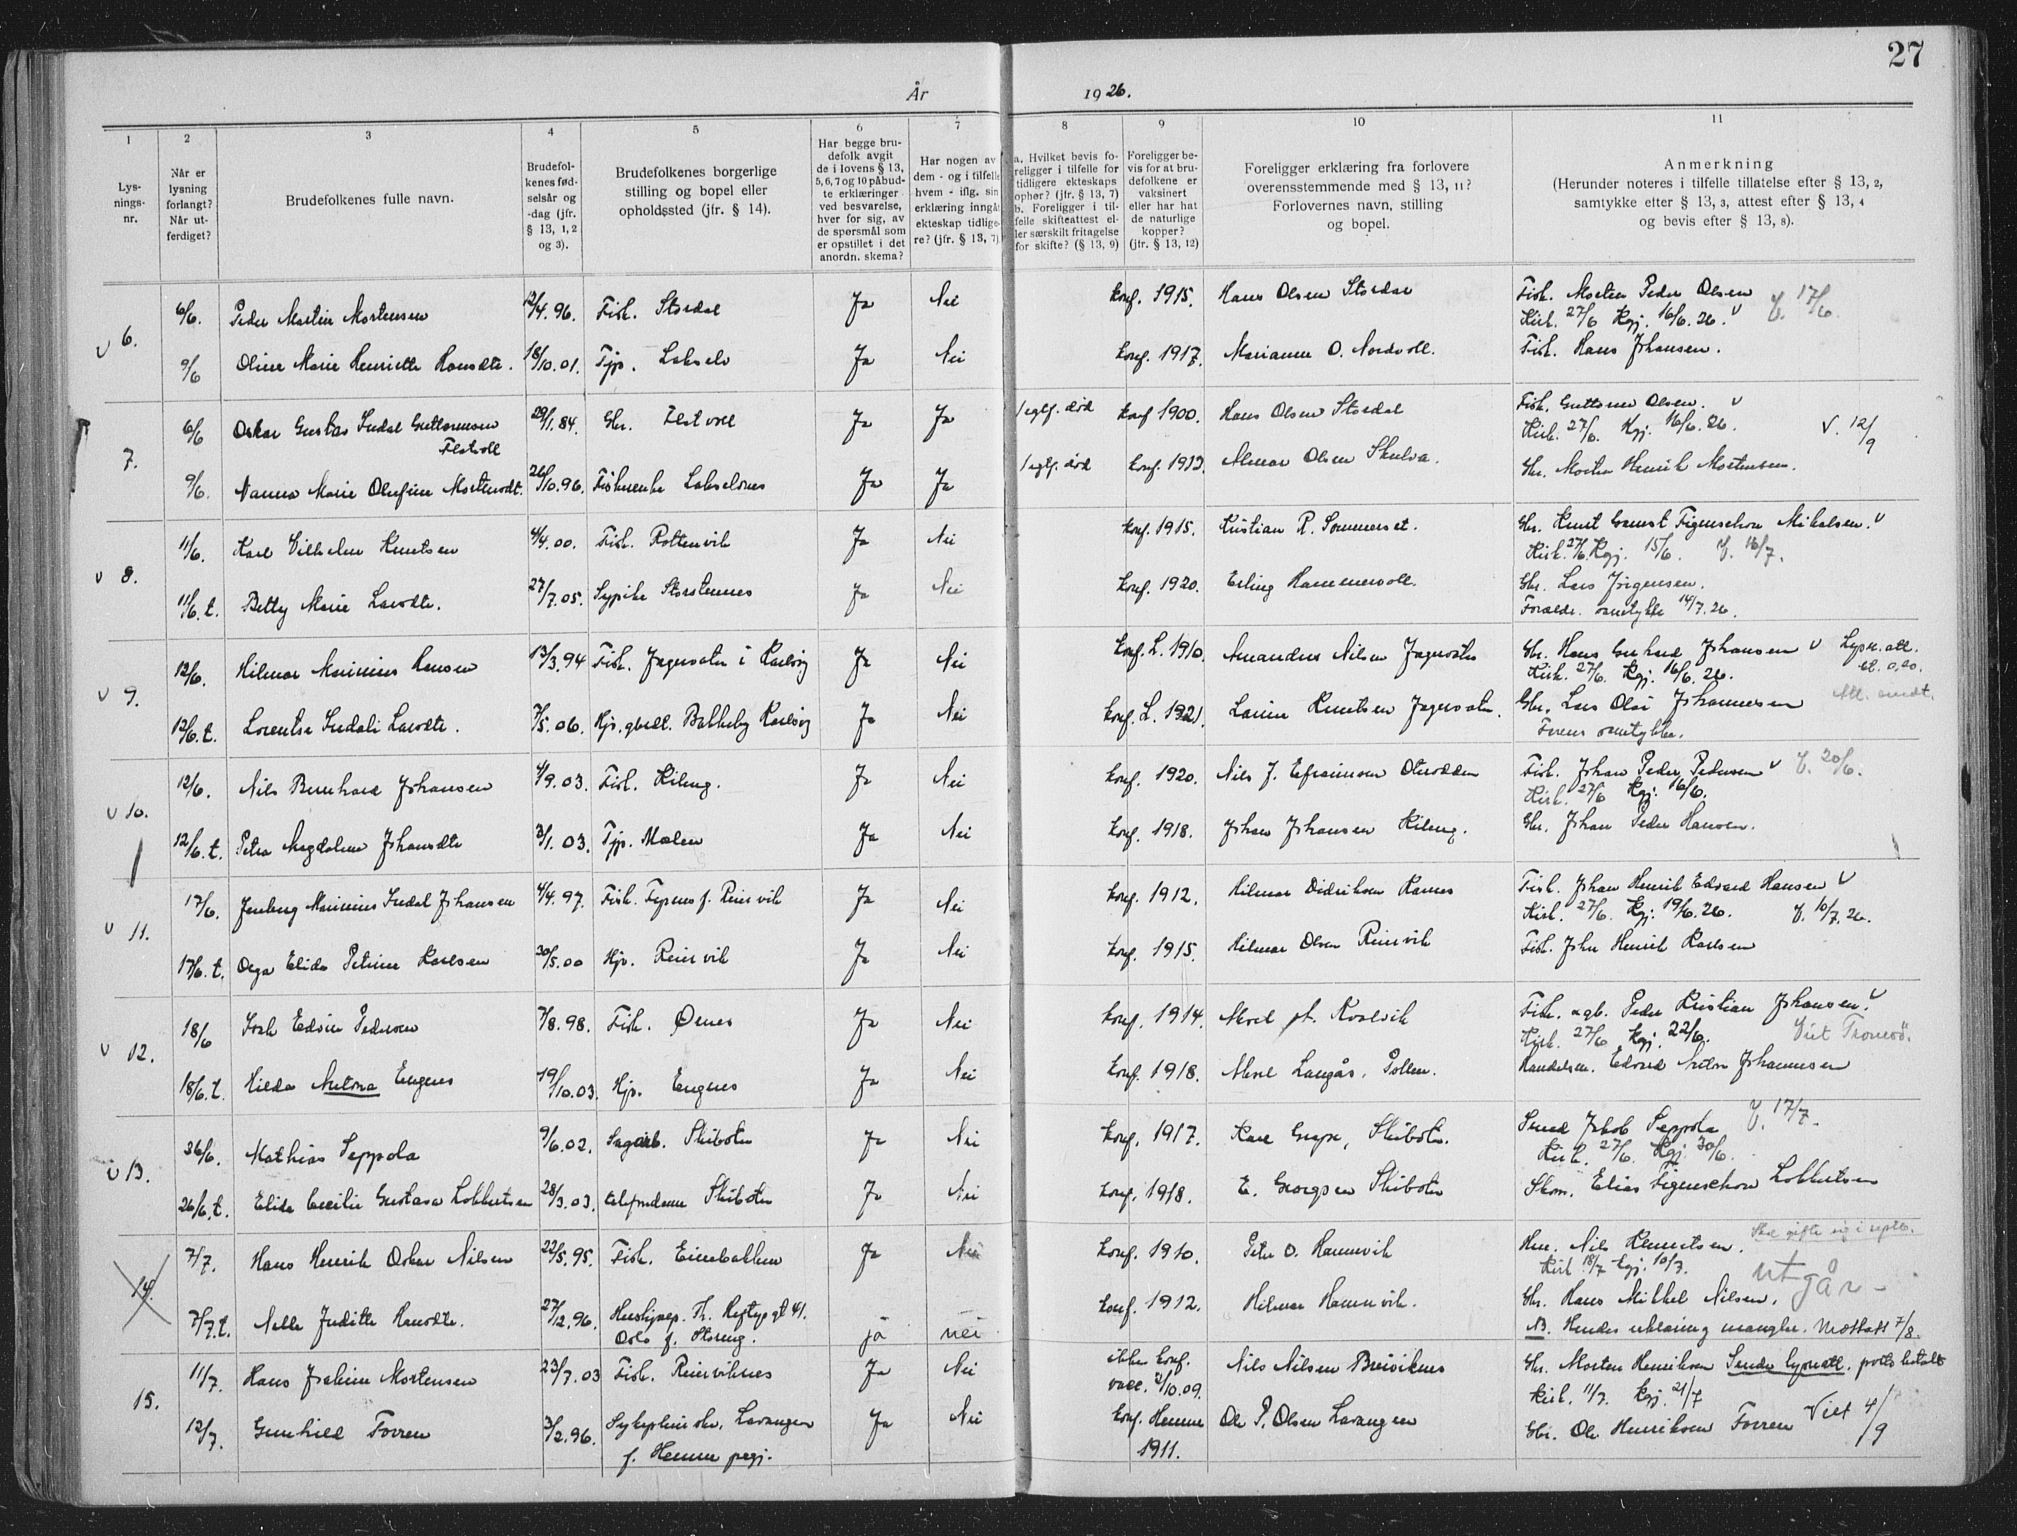 27
År 1926.
1 2 3 4 5 6 7 8 9 10 11
Lys-
nings-
nr.
Når er
lysning
forlangt?
Når ut-
ferdiget?
Brudefolkenes fulle navn.
Brudefol-
kenes fød-
selsår og
-dag (jfr.
§ 13, 1, 2
og 3).
Brudefolkenes borgerlige
stilling og bopel eller
opholdssted (jfr. § 14).
Har begge bru-
defolk avgit
de i lovens § 13,
5, 6, 7 og 10 påbud-
te erklæringer
ved besvarelse,
hver for sig, av
de spørsmål som
er opstillet i det
anordn. skema?
Har nogen av
dem - og i tilfelle
hvem - iflg. sin
erklæring inngå
ekteskap tidlige-
re? (jfr. § 13, 7)
a. Hvilket bevis fo-
religger i tilfelle for
tidligere ekteskaps
ophør? (jfr. § 13, 7)
b. Foreligger i til-
felle skifteattest el-
ler særskilt fritagelse
for skifte? (§ 13, 9)
Foreligger be-
vis for at bru-
defolkene er
vaksinert
eller har hat
de naturlige
kopper?
(jfr. § 13, 12)
Foreligger erklæring fra forlovere
overensstemmende med § 13, 11?
Forlovernes navn, stilling
og bopel.
Anmerkning
(Herunder noteres i tilfelle tillatelse efter § 13, 2,
samtykke efter § 13, 3, attest efter § 13, 4
og bevis efter § 13, 8).
v 6. 6/6. Peder Martin Mortensen 12/4. 96. Fisk. Stordal Ja Nei konf. 1915. Hans Olsen Stordal Fisk. Morten Peder Olsen V. 17/6.
Kirk. 27/6 Kgj. 16/6. 26. v
9/6 Oline Marie Henriette Hansdtr. 18/10. 01. Tjp. Lakselv Ja Nei konf. 1917. Marianne O. Nordvoll. Fisk. Hans Johansen.
7. 6/6 Oskar Gustav Indal Guttormsen 29/1. 84. Gbr. Flatvoll Ja Ja 1 egtf. død konf. 1900. Hans Olsen Stordal Fisk. Guttorm Olsen. v
Flatvoll Kirk. 27/6. Kgj. 16/6. 26. V. 12/9
9/6. Nanna Marie Olufine Mortensdt. 26/10. 96. Fiskerenke Lakselvnes Ja Ja 1 egtf. død konf. 1913. Almar Olsen Gbr. Morten Henrik Mortensen.
v 8. 11/6. Karl Vilhelm Knutsen 4/4. 00. Fisk. Rottenvik Ja Nei konf. 1915. Kristian R. Sommerset. Gbr. Knut Figenschou Mikalsen. v
Kirk. 27/6 Kgj. 15/6. V. 16/7.
11/6. t. Betty Marie Larsdtr. 27/7. 05. Sypike Storsteinnes Ja Nei konf. 1920. Erling Hammervoll. Gbr. Lars Jørgensen.
Forældr. samtykke 14/7. 26.
v 9. 12/6. Hilmar Marinius Hansen 13/3. 94 Fisk. Jægervatn i Karlsøy Ja Nei konf. L. 1910. Amandus Nilsen Jægervatn Gbr. Hans Gerhard Johansen v
Kirk. 27/6. Kgj. 16/6. 26.
12/6. t. Lorentse Indali Larsdtr. 7/5. 06. Hjv. Bakkeby Karlsøy Ja Nei konf. L. 1921. Laurie Knutsen Jægervatn. Gbr. Lars Olai Johannesen
samtykke.
v 10. 12/6. Nils Bernhard Johansen 4/9. 03. Fisk. Kileng. Ja Nei konf. 1920. Nils J. Efraimsen Fisk. Johan Peder Pedersen v V. 20/6.
Kirk. 27/6 Kgj. 16/6.
12/6. t. Petra Magdalene Johansdtr 3/1. 03. Tjp. Malen Ja Nei konf. 1918. Johan Johansen Kileng. Gbr. Johan Peder Hansen.
v 11. 17/6. Jenberg Marinius Indal Johansen 4/4. 97. Fisk. f. Reiervik Ja Nei konf. 1912. Hilmar Didriksen Ramnes Fisk. Johan Henrik Edvard Hansen v
Kirk. 27/6. Kgj. 19/6. 26. V. 10/7. 26.
17/6. t. Olga Elida Petrine Karlsen 30/5. 00 Hjv. Reiervik Ja Nei konf. 1915. Hilmar Olsen Reiervik Fisk. John Henrik Karlsen
v 12. 18/6 Isak Edvin Pedersen 7/8. 98. Fisk. Ørnes Ja Nei konf. 1914. Kvalvik Fisk. Peder Kristian Johansen. v
Kirk. 27/6 kgj. 22/6. Viet Tromsö.
18/6. t. Hilda Antora Engnes 19/10. 03. Hjv. Engnes Ja Nei konf. 1918. Langås, Pollen. Handelsm. Edvard Johannesen
v 13. 26/6. Mathias Seppola 9/6. 02. Sagarb. Skibotn Ja Nei konf. 1917. Karl Grape, Skibotn. Smed Jakob Seppola V. 17/7.
Kirk. 27/6. Kgj 30/6.
26/6. t. Elida Cecilie Gustava Lobbertsen 28/3. 03. Skibotn Ja Nei konf. 1918. E. Georgsen Skibotn Skom. Elias Figenschou Lobbertsen
14. 7/7. Hans Henrik Oskar Nilsen 22/5. 95. Fisk. Einebakken Ja Nei konf. 1910. Peter O. Hamnvik Nils Klemetsen. Skal gifte sig i septb.
Kirk 18/7 kgj. 10/7. utgår -
7/7. t. Nelle Judith Hansdtr. 27/12. 96. Th. Heftyes gt 41. ja nei konf. 1912. Hilmar Hamnvik. Gbr. Hans Mikkel Nilsen.
Oslo f. Storeng. NB. Hendes erklæring mangler. Mottatt 7/8.
15. 11/7. Hans Joakim Mortensen 23/7. 03 Fisk. Reiervíknes Ja Nei ikke konf. Nils Nilsen Breivíknes Gbr. Morten Henriksen Sender lysn.att. porto betalt
vacc. 2/10. 09. Kirk. 11/7. kgj. 21/7
12/7. Gunhild Forren 3/2. 96. Sykepleierske, Lavangen Ja Nei konf. Hemne Ole P. Olsen Lavangen Gbr. Ole Henriksen Forren Viet 4/9
f. Hemne prgj. 1911.